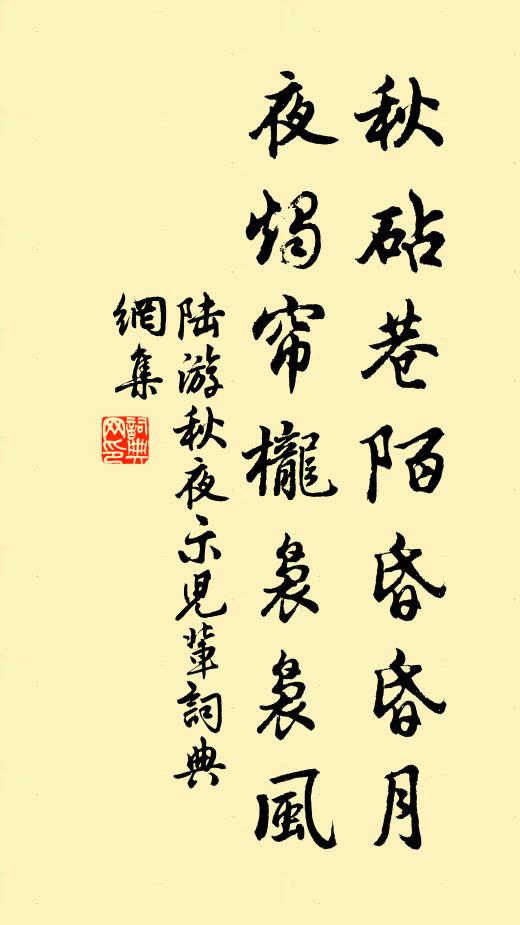 秋砧巷陌昏昏月
夜燭帘櫳裊裊風
陸游秋夜示兒輩詞典
網集
詞典
网印